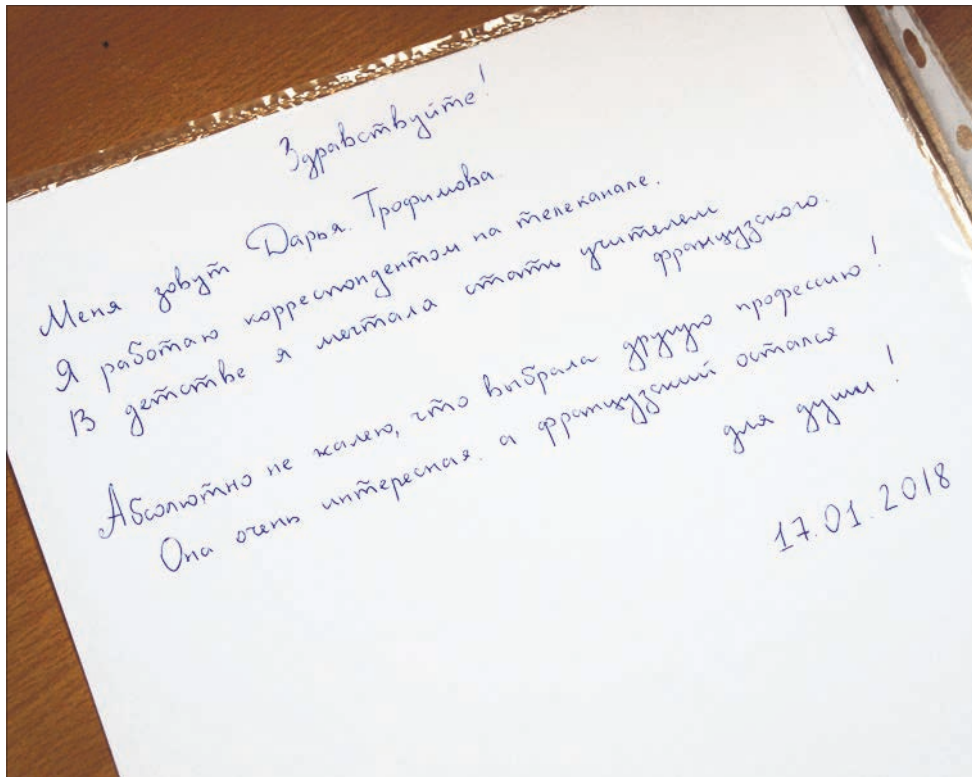 Здравствуйте!
Меня зовут Дарья Трофимова.
Я работаю корреспондентом на телеканале.
В детстве я мечтала стать учителем
французского.
Абсолютно не жалею, что выбрала другую профессию!
Она очень интересная. а французский остался
для души!
17.01.2018